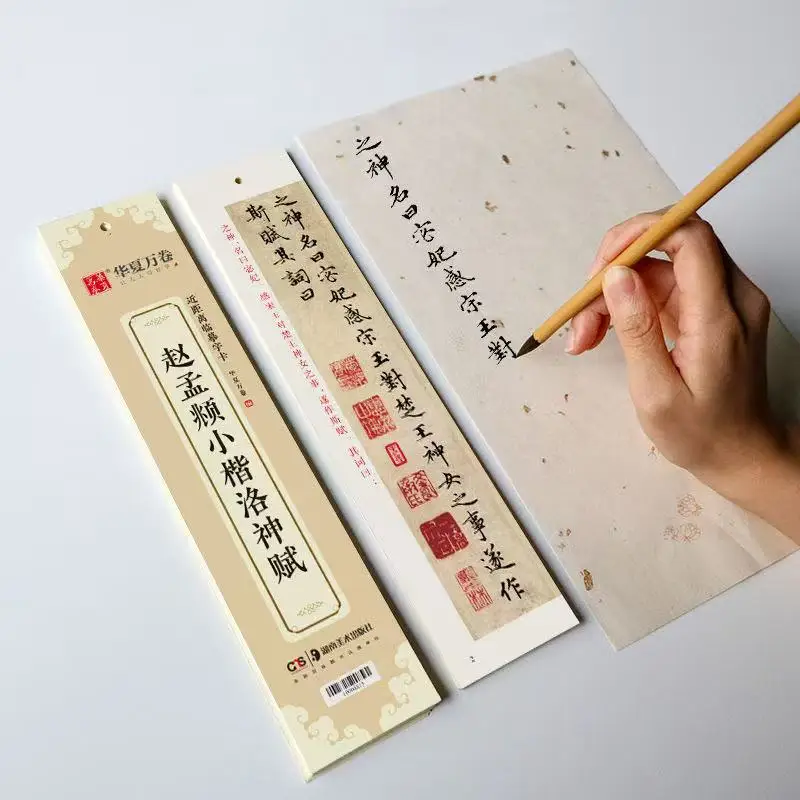 华夏万卷
近距离临摹字卡
华夏万卷
赵孟頫小楷洛神赋
CTS
湖南美术出版社
之神名曰宓妃感宗玉對楚王神女之事遂作
斯賦其詞曰
之神，名曰宓妃。感宋玉对楚王神女之事，遂作斯赋，其词曰：
2
之神名曰宓妃感宗玉對